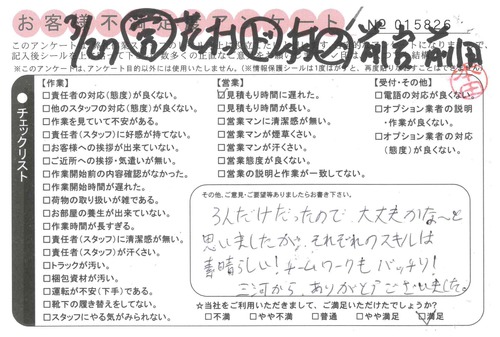 お客様不満足度アンケート
№ 015826
3/27
前田
このアンケートは
記入後シールを
※このアンケートは、アンケート目的以外には使用いたしません。(※情報保護シールは1度はがすと、再度貼り
チェックリスト
【作業】
□責任者の対応(態度)が良くない。
□他のスタッフの対応(態度)が良くない。
□作業を見ていて不安がある。
□責任者(スタッフ)に好感が持てない。
□お客様への挨拶が出来ていない。
□ご近所への挨拶・気遣いが無い。
□作業開始前の内容確認がなかった。
□作業開始時間が遅れた。
□荷物の取り扱いが雑である。
□お部屋の養生が出来ていない。
□作業時間が長すぎる。
□責任者(スタッフ)に清潔感が無い。
□責任者(スタッフ)が汗くさい。
□トラックが汚い。
□梱包資材が汚い。
□運転が不安(下手)である。
□靴下の履き替えをしてない。
□スタッフにやる気がみられない。
【営業】
□見積もり時間に遅れた。
□見積もり時間が長い。
□営業マンに清潔感が無い。
□営業マンが煙草くさい。
□営業マンが汗くさい。
□営業態度が良くない。
□営業の説明と作業が一致してない。
【受付・その他】
□電話の対応が良くない。
□オプション業者の説明
・作業が良くない。
□オプション業者の対応
(態度)が良くない。
その他、ご意見・ご要望等ありましたらお書き下さい。
3人だけだったので、大丈夫かな〜と
思いましたが、それぞれのスキルは
素晴らしい！チームワークもバッチリ！
三河から、ありがとうございました。
☆当社をご利用いただきまして、ご満足いただけたでしょうか？
□不満 □やや不満 □普通 □やや満足 ☑満足